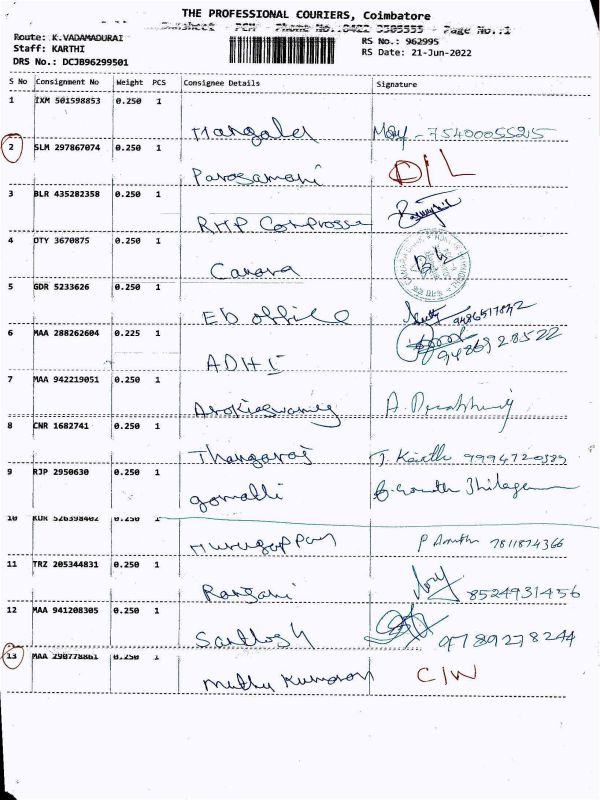 THE PROFESSIONAL COURIERS, Coimbatore
PCM - Phone No.:0422 3505555 - Page No.:1
Route: K.VADAMADURAI
RS No.: 962995
Staff: KARTHI
RS Date: 21-Jun-2022
DRS No.: DCJB96299501
S No Consignment No Weight PCS Consignee Details Signature
1 IXM 501598853 0.250 1
Mangalel 7540005525
2 SLM 297867074 0.250 1
D/L
3 BLR 435282358 0.250 1
RHP
4 OTY 3670875 0.250 1
Canara
5 GDR 5233626 0.250 1
Eb office
6 MAA 288262604 0.225 1
ADHI 9486928522
7 MAA 942219051 0.250 1
Arokiaswamy A.
8 CNR 1682741 0.250 1
Thangaraj T. Karth 9994720389
9 RJP 2950630 0.250 1
gomathi
10 KUR 526398402 0.250 1
Murugappan P 7811874366
11 TRZ 205344831 0.250 1
Ranjani 8524931456
12 MAA 941208305 0.250 1
Santhosh 9789278244
13 MAA 290778861 0.250 1
Muthu Kumaran C/W